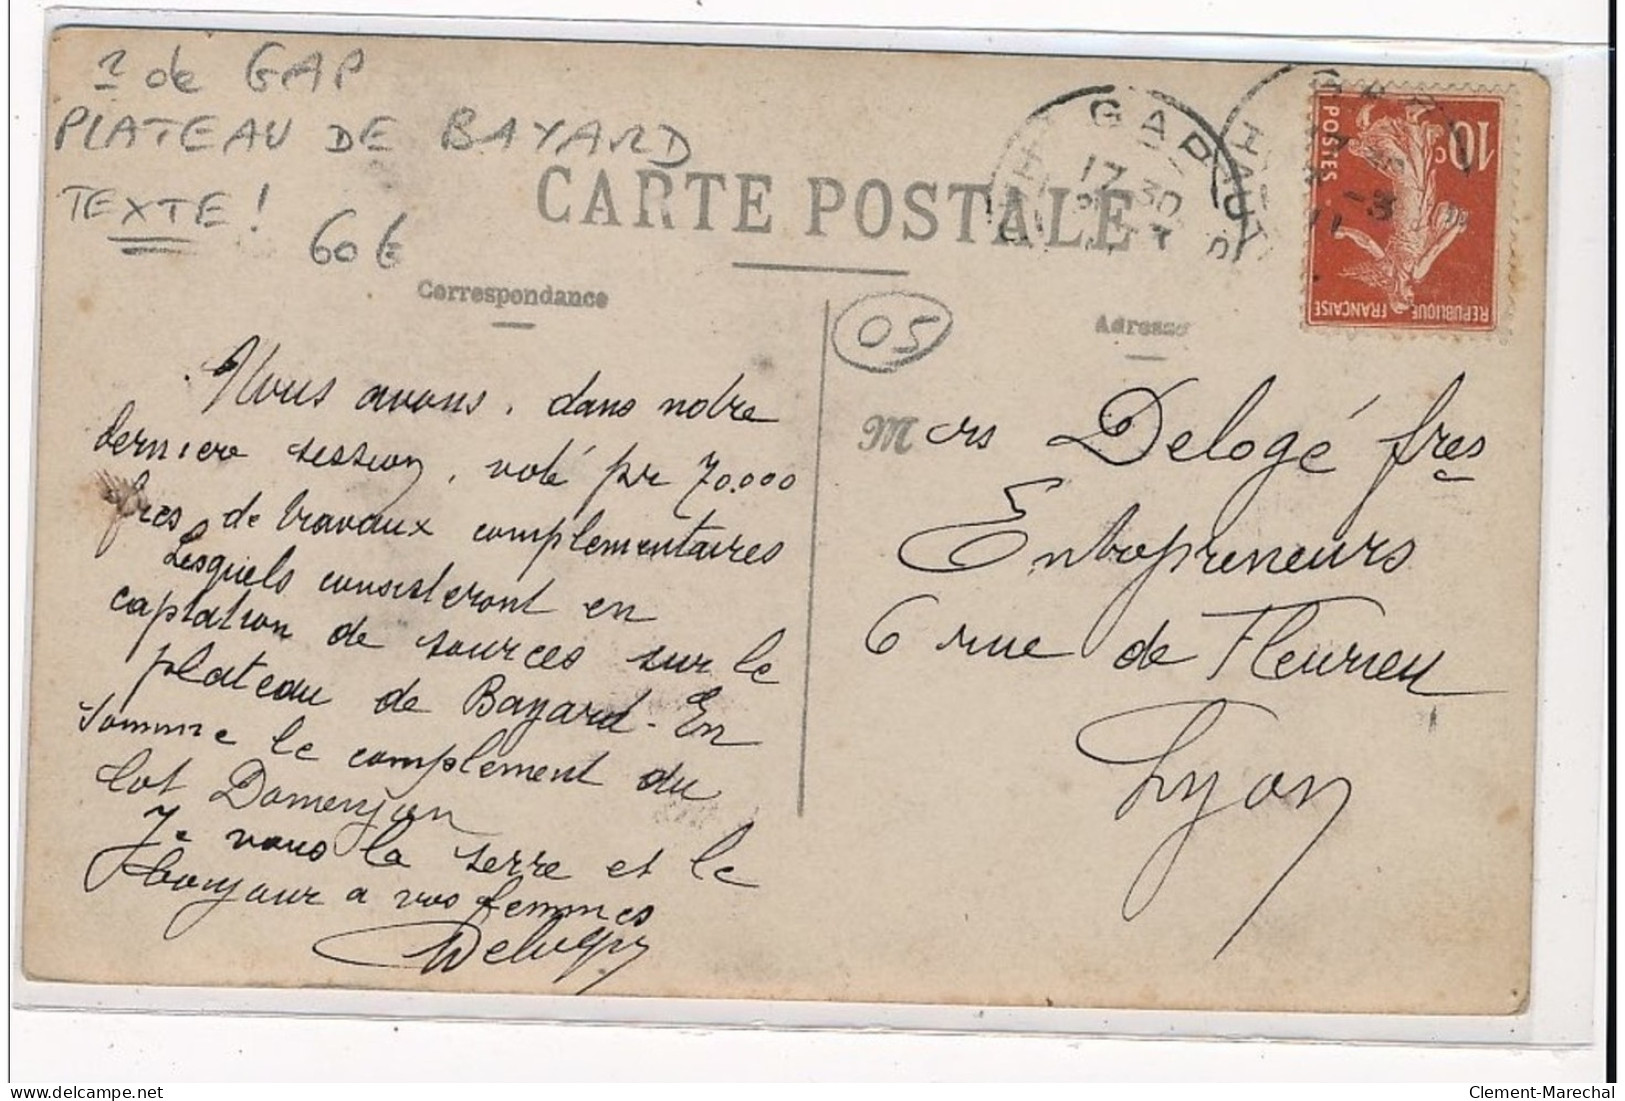 ? de GAP
PLATEAU DE BAYARD
TEXTE !
60 €
CARTE POSTALE
GAP
17 30
HAUTES
-3
11
10c
POSTES
REPUBLIQUE FRANÇAISE
Correspondance
05
Adresse
Nous avons, dans notre
derniere session, voté pr 70.000
frcs de travaux complementaires
Lesquels consisteront en
captation de sources sur le
plateau de Bayard - En
somme le complement du
lot Domenjon
Je vous la serre et le
bonjour a vos femmes
M ers Delogé fres
Entrepreneurs
6 rue de Fleurieu
Lyon
delcampe.net
Clement-Marechal